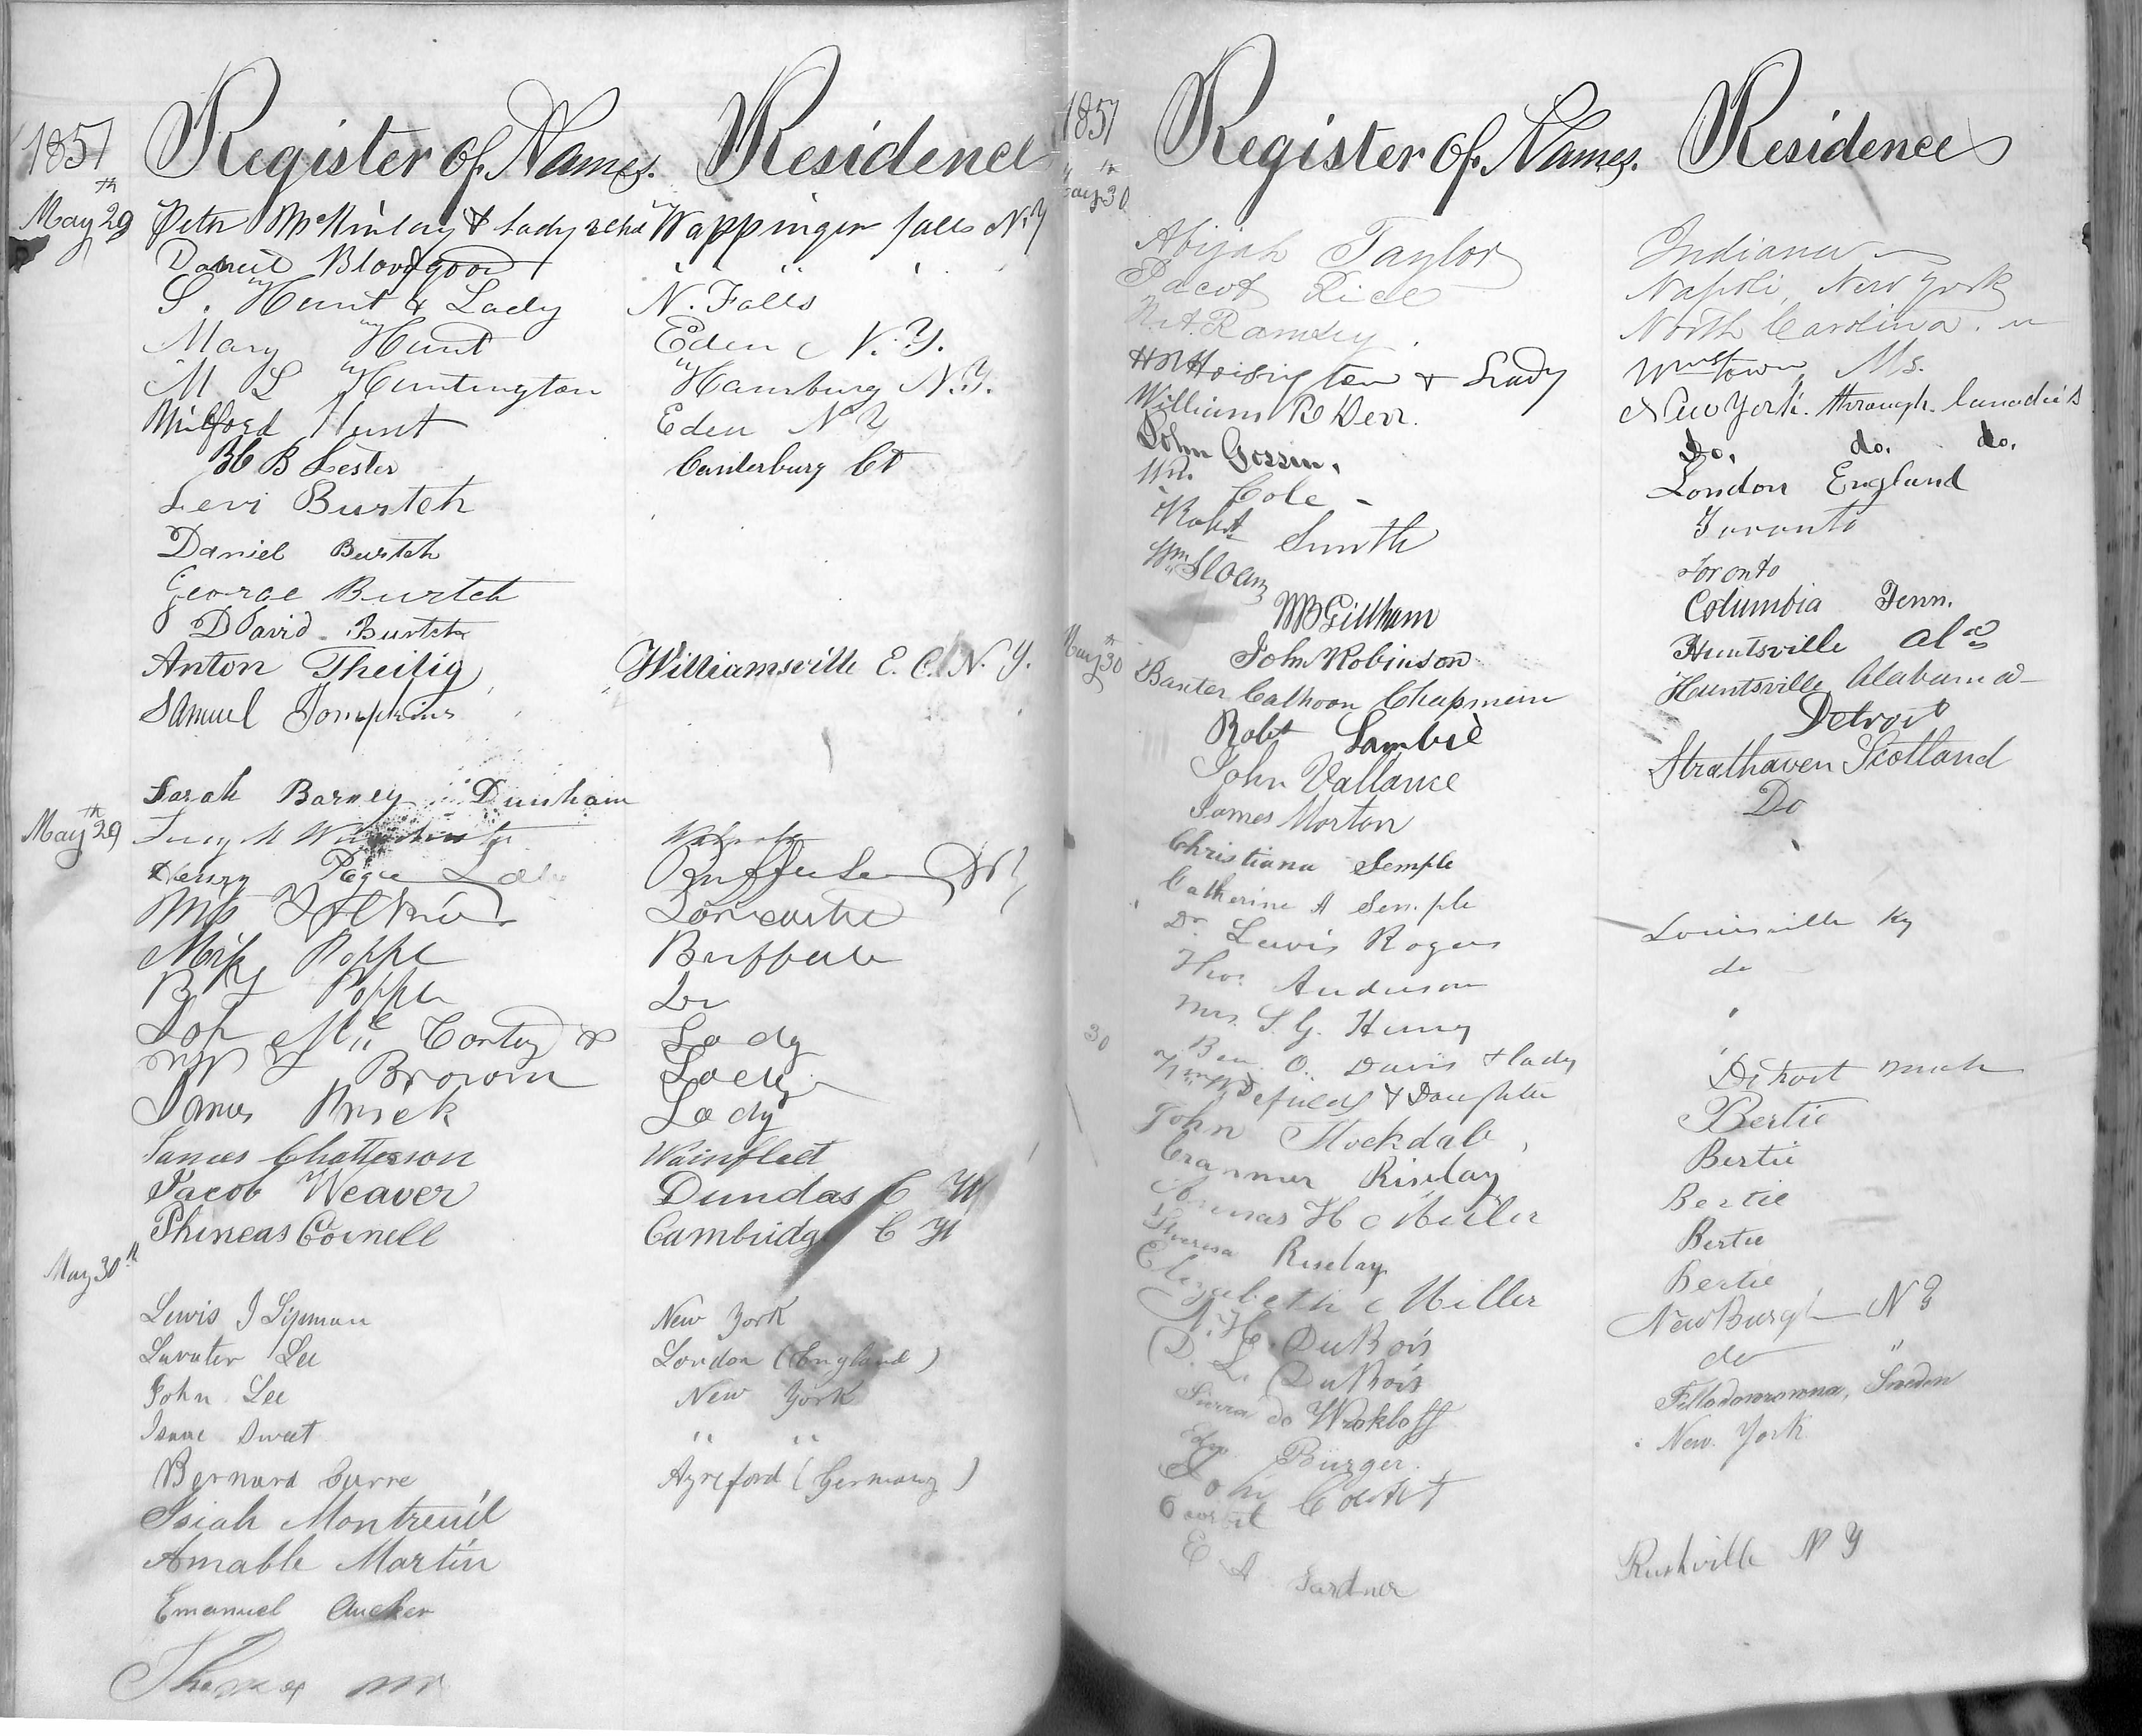 1857 Register of Names. Residence
May 29th Peter McKinlay & Lady Wappinger falls N.Y
Daniel Bloodgood " "
S. Hunt & Lady N. Falls
Mary Hunt Eden N.Y.
M L Huntington Hamburg N.Y.
Milford Hunt Eden N Y
B Lester Canterbury Ct
Levi Burtch
Daniel Burtch
George Burtch
David Burtch
Anton Theilig Williamsville E. C. N. Y.
Samuel Tompkins
Sarah Barney Dunham
May 29th Lucy M
Henry Page Buffalo
Lancaster
Miss Poppe Buffalo
Poppe Do
McCarty & Lady
Brown Lady
James Brick Lady
James Chatterson Wainfleet
Jacob Weaver Dundas C W
Phineas Cornell Cambridge C W
May 30th
Lewis J Lipman New York
Lavater Lee London (England)
John Lee New York
Isaac Sweet " "
Bernard Curre Ayreford (Germany)
Isiah Montreuil
Amable Martin
Emanuel Aucker
Thomas
1857 Register of Names. Residence
May 30th
Abijah Taylor Indiana
Jacob Rice Napoli, New York
N. A. Ramsey North Carolina
H N Hoisington & Lady Wmstown Ms.
William R Derr. New York. through Canada's
John Gossin. Do. do. do.
Wm. Cole London England
Robt Smith Toronto
Wm Sloan Toronto
WB Gillham Columbia Tenn.
John Robinson Huntsville Ala
May 30th Baxter Calhoon Chapman Huntsville Alabama
Robt Lambie Detroit
John Vallance Strathaven Scotland
James Morton Do
Christiana Semple
Catherine A Semple
Dr Lewis Rogers Louisville Ky
Thos. Anderson do
Mrs. S. G. Henry "
30 Ben O. Davis & lady "
& Daughter Detroit Mich
John Stockdale, Bertie
Cranmer Riselay Bertie
James H Miller Bertie
Theresa Riselay Bertie
Elizabeth Miller Bertie
N. H. DuBois NewBurgh N Y
D. L. DuBois do "
Wrokloff Sweden
Edw. Burger. New York
John
E A Gardner Rushville N Y